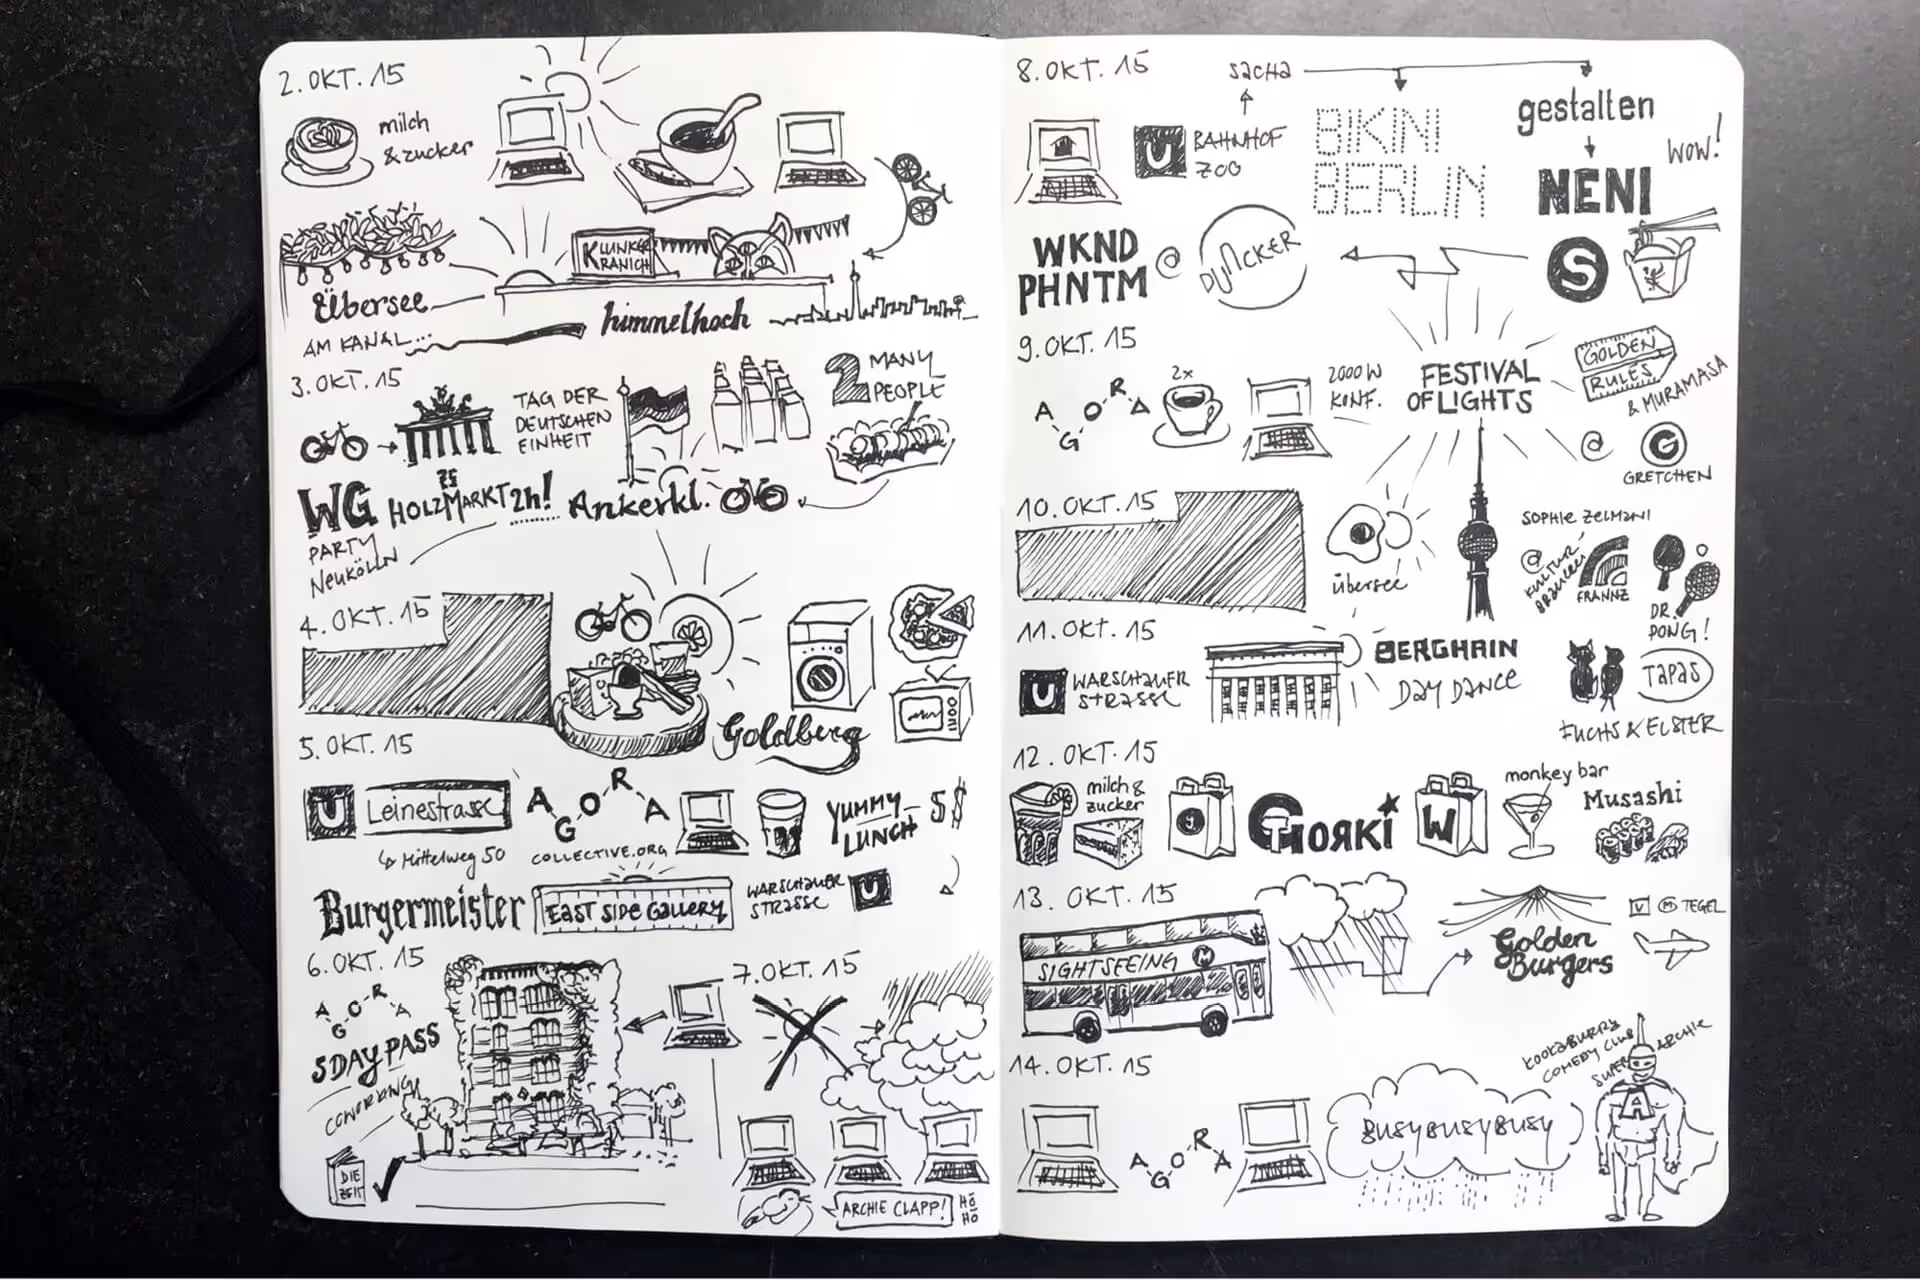 2. OKT. 15
milch
& zucker
KLUNKER
KRANICH
Übersee
AM KANAL...
himmelhoch
3. OKT. 15
TAG DER
DEUTSCHEN
EINHEIT
2 MANY
PEOPLE
WG
PARTY
NEUKÖLLN
HOLZMARKT
25
2h!
Ankerkl.
4. OKT. 15
Goldberg
5. OKT. 15
U Leinestrasse
↳ Mittelweg 50
AGORA
COLLECTIVE.ORG
YUMMY
LUNCH
5 $
Burgermeister
EAST SIDE GALLERY
WARSCHAUER
STRASSE
U
6. OKT. 15
AGORA
5 DAY PASS
COWORKING
DIE
ZEIT
7. OKT. 15
ARCHIE CLAPP!
HÖ
HÖ
8. OKT. 15
SACHA
U BAHNHOF
ZOO
BIKINI
BERLIN
gestalten
WOW!
NENI
WKND
PHNTM
@
DUNCKER
S
9. OKT. 15
AGORA
2x
2000W
KONF.
FESTIVAL
OF LIGHTS
GOLDEN
RULES
& MURAMASA
@ G
GRETCHEN
10. OKT. 15
übersee
SOPHIE ZELMANI
@
KULTUR-
BRAUEREI
FRANNZ
DR.
PONG!
11. OKT. 15
U WARSCHAUER
STRASSE
BERGHAIN
DAY DANCE
TAPAS
FUCHS & ELSTER
12. OKT. 15
milch &
zucker
GORKI
W
monkey bar
Musashi
13. OKT. 15
SIGHTSEEING M
Golden
Burgers
TEGEL
14. OKT. 15
AGORA
BUSYBUSYBUSY
KOOKABURRA
COMEDY CLUB
SUPER ARCHIE
A